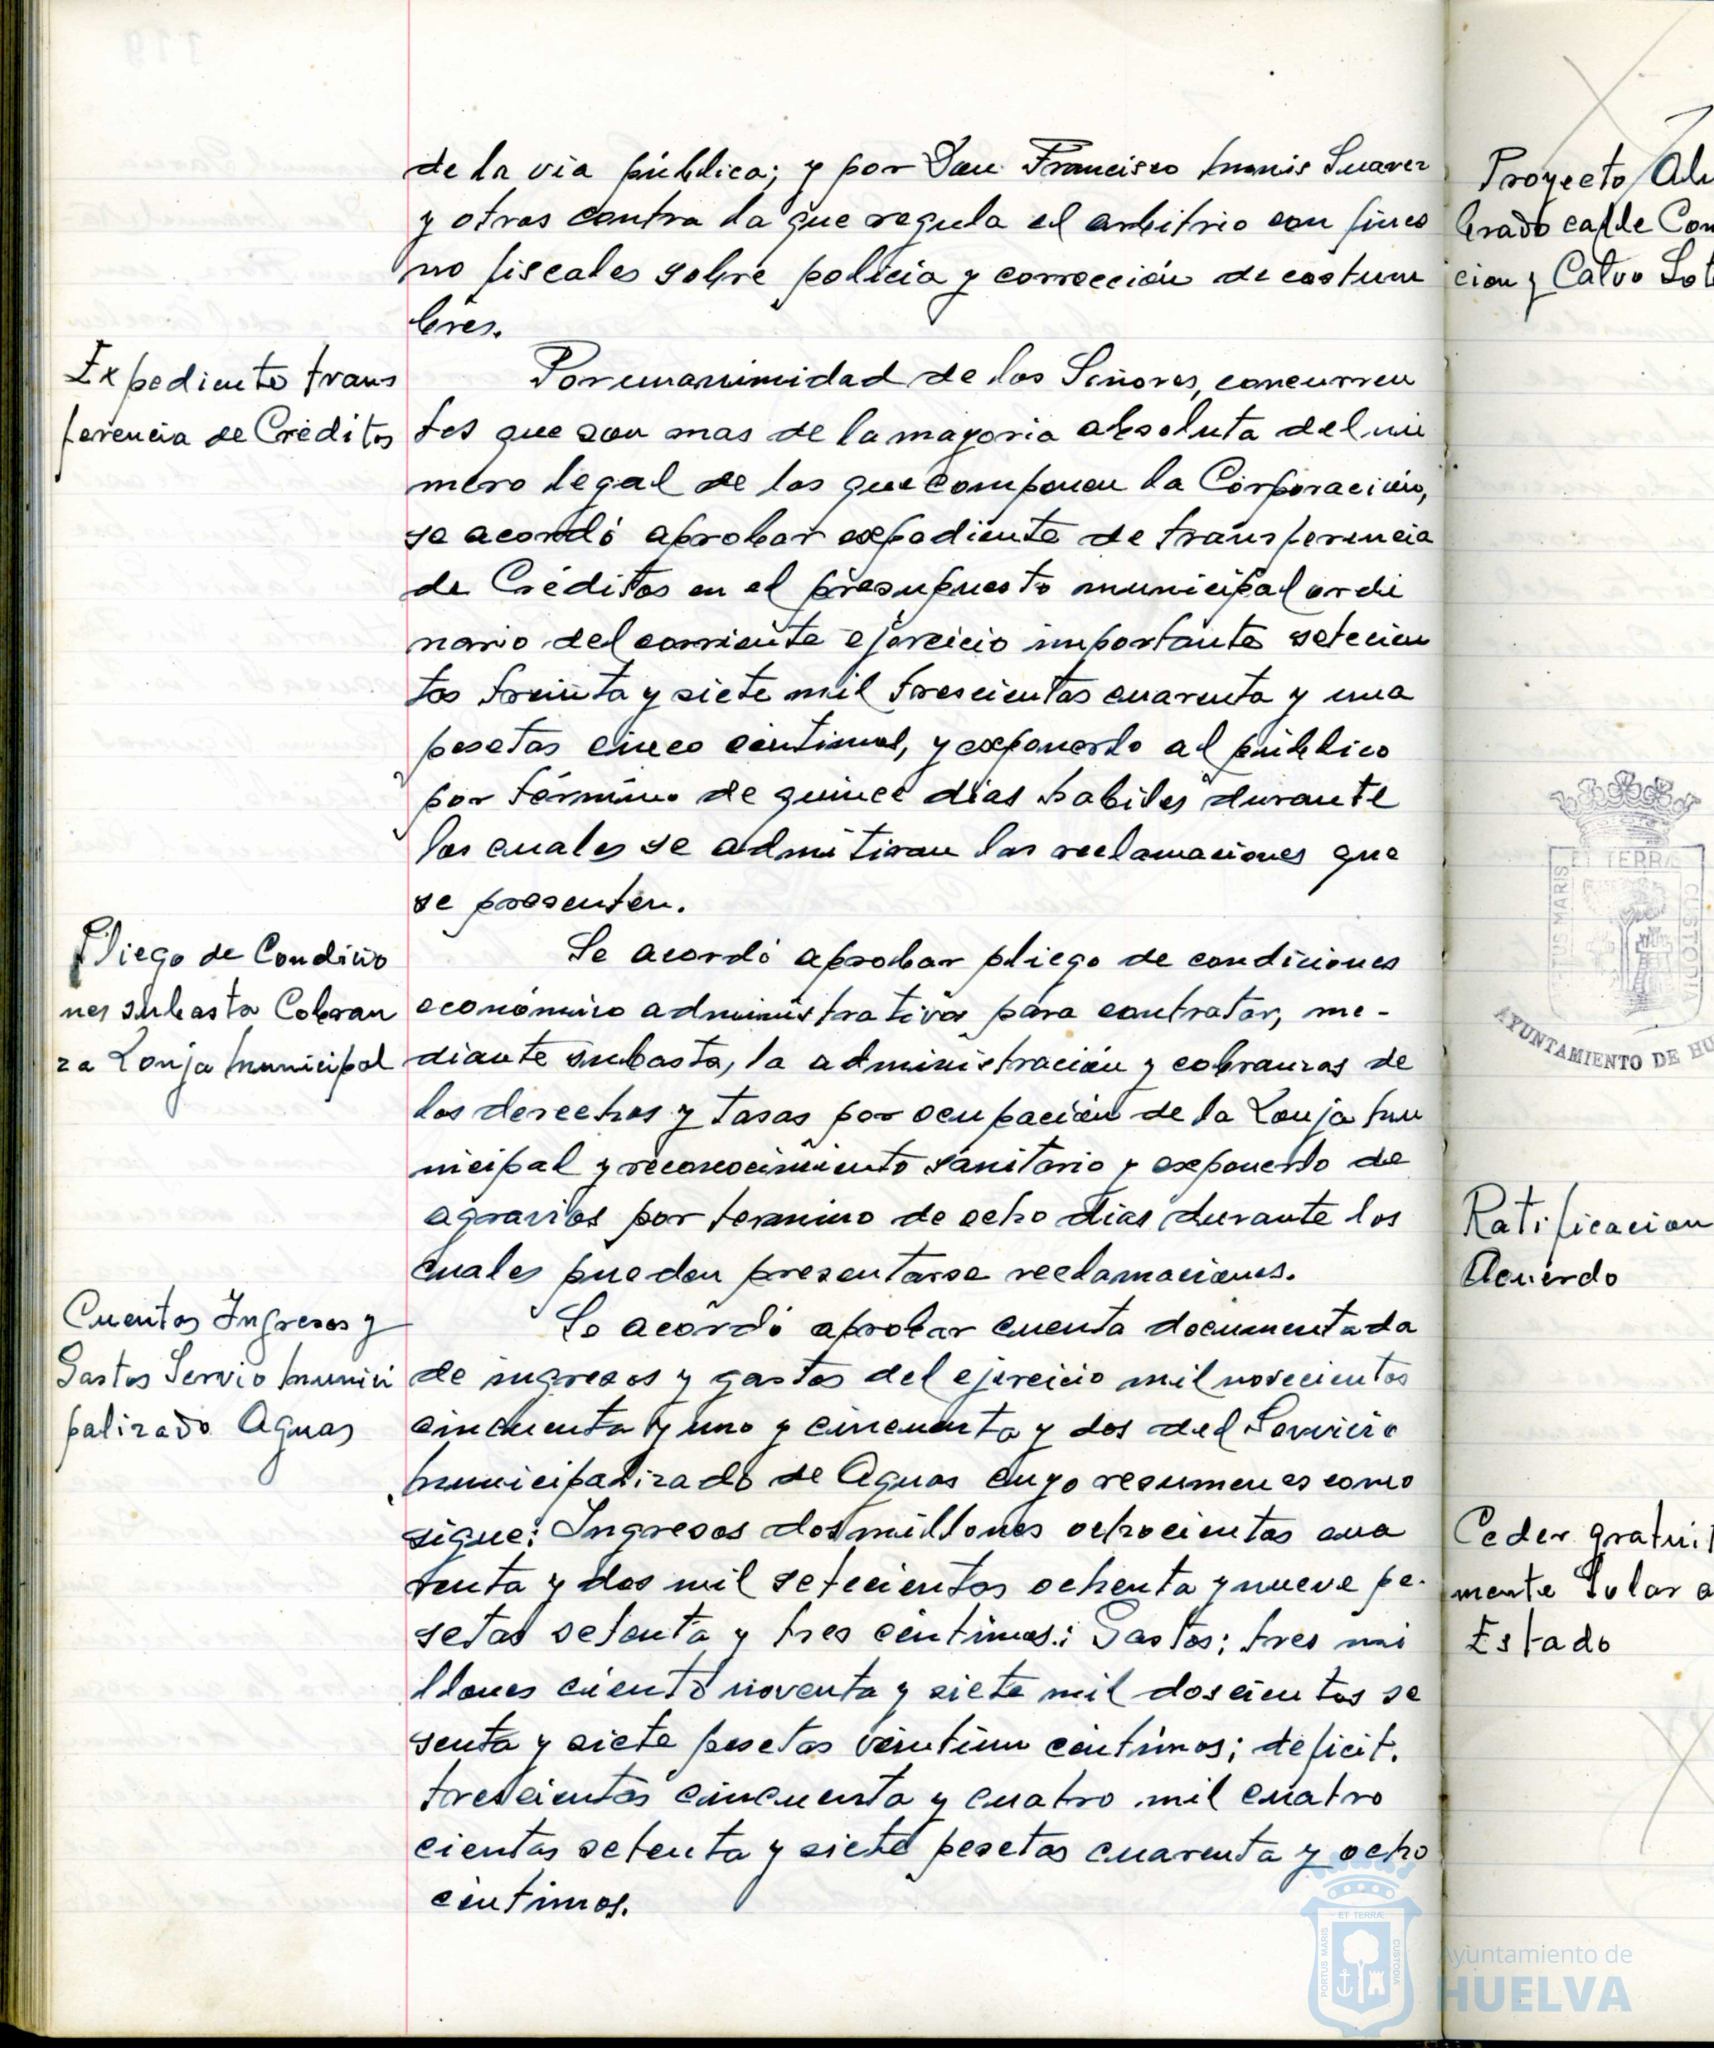 de la via pública; y por Don Francisco Munis Suarez
y otros contra la que regula el arbitrio con fines
no fiscales sobre policia y corrección de costum
bres.
Expediente trans
ferencia de Créditos
Por unanimidad de los Señores, concurren
tes que son mas de la mayoria absoluta del nú
mero legal de los que componen la Corporación,
se acordó aprobar expediente de transferencia
de Créditos en el presupuesto municipal ordi
nario del corriente ejercicio importante setecien
tos treinta y siete mil trescientas cuarenta y una
pesetas cinco centimos, y exponerlo al público
por término de quince dias habiles durante
los cuales se admitiran las reclamaciones que
se presenten.
Pliego de Condicio
nes subasta Cobran
za Lonja Municipal
Se acordó aprobar pliego de condiciones
económico administrativas para contratar, me-
diante subasta, la administración y cobranzas de
los derechos y tasas por ocupación de la Lonja Mu
nicipal y reconocimiento sanitario y exponerlo de
agravios por termino de ocho dias durante los
cuales pueden presentarse reclamaciones.
Cuentas Ingresos y
Gastos Servio Munici
palizado Aguas
Se acordó aprobar cuenta documentada
de ingresos y gastos del ejercicio mil novecientos
cincuenta y uno y cincuenta y dos del Servicio
Municipalizado de Aguas cuyo resumen es como
sigue: Ingresos dos millones ochocientas cua
renta y dos mil setecientas ochenta y nueve pe-
setas setenta y tres céntimos.; Gastos; tres mi
llones ciento noventa y siete mil doscientas se
senta y siete pesetas veintiun céntimos; deficit.
trescientas cincuenta y cuatro mil cuatro
cientas setenta y siete pesetas cuarenta y ocho
céntimos.
Proyecto Alu
brado calle Con
cion y Calvo Sot
ET TERRÆ
CUSTODIA
AYUNTAMIENTO DE HU
Ratificacion
Acuerdo
Ceder gratuit
mente Solar a
Estado
PORTUS MARIS
ET TERRÆ
CUSTODIA
Ayuntamiento de
HUELVA